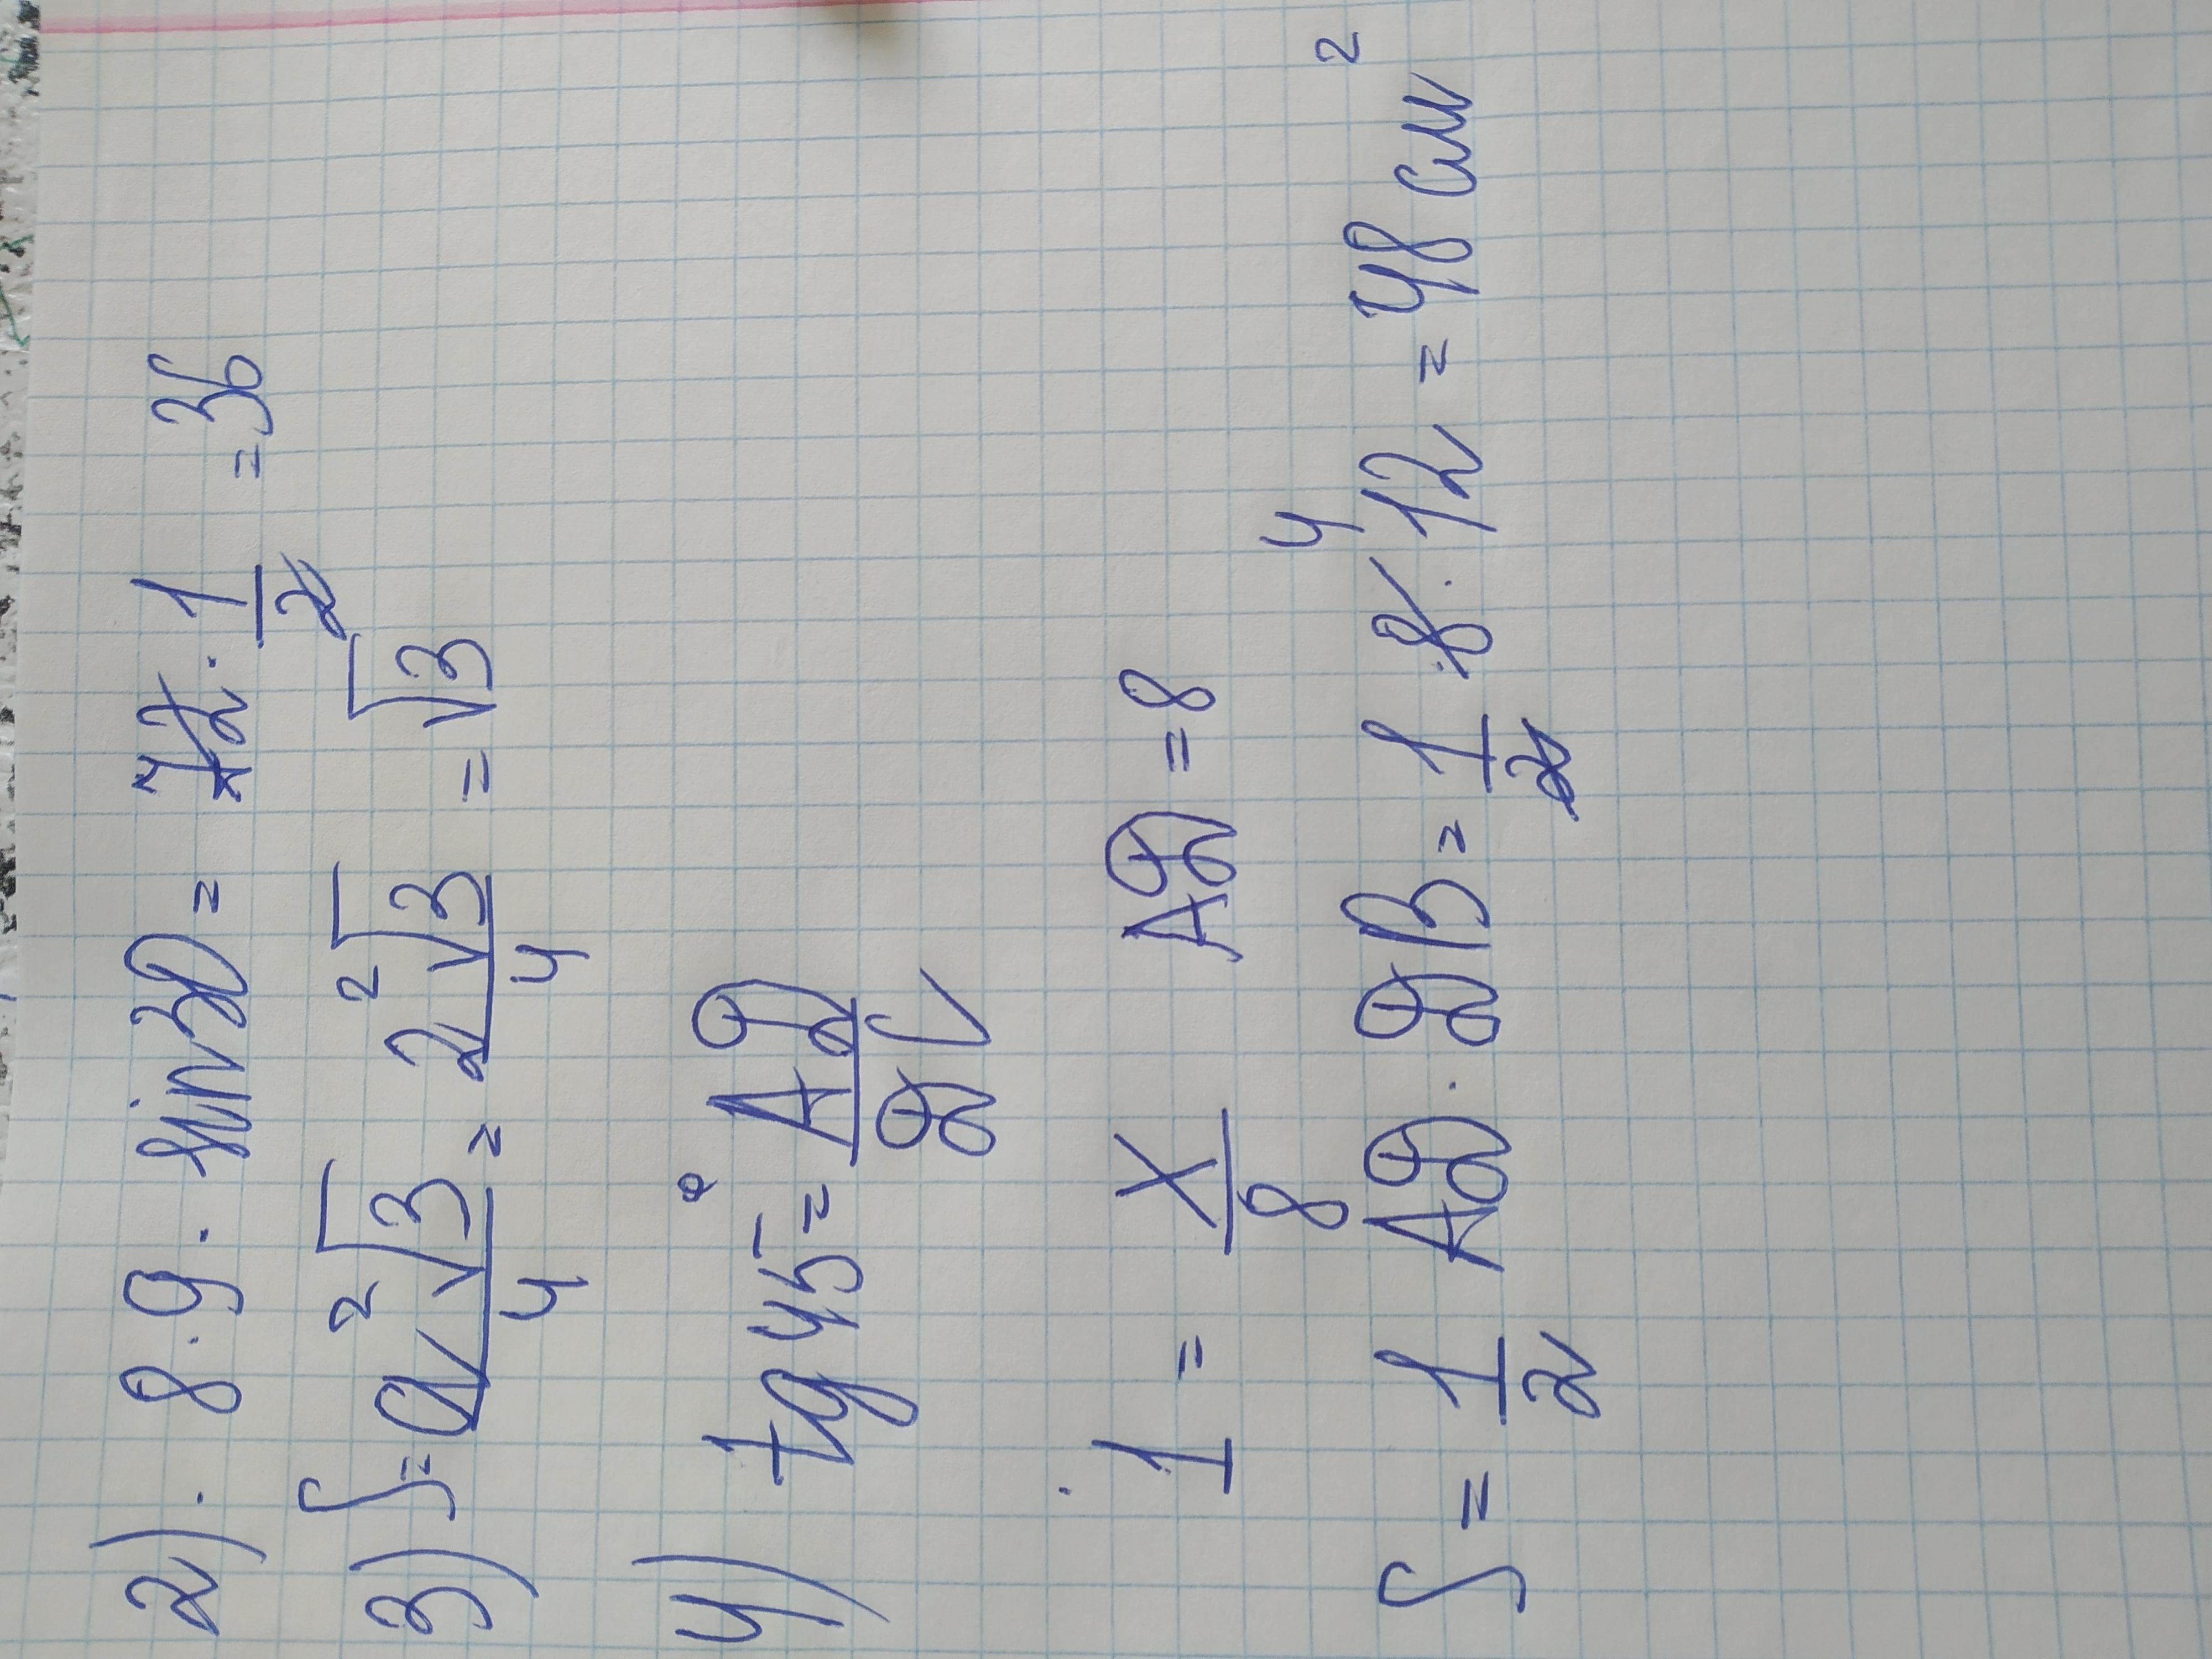 2). 8 · 9 · sin30 = 72 · 1/2 = 36
3) S = a²√3/4 = 2²√3/4 = √3
4) tg45° = AД/ДC
1 = x/8 AД = 8
S = 1/2 AД · ДB = 1/2 · 8 4 · 12 = 48 см²